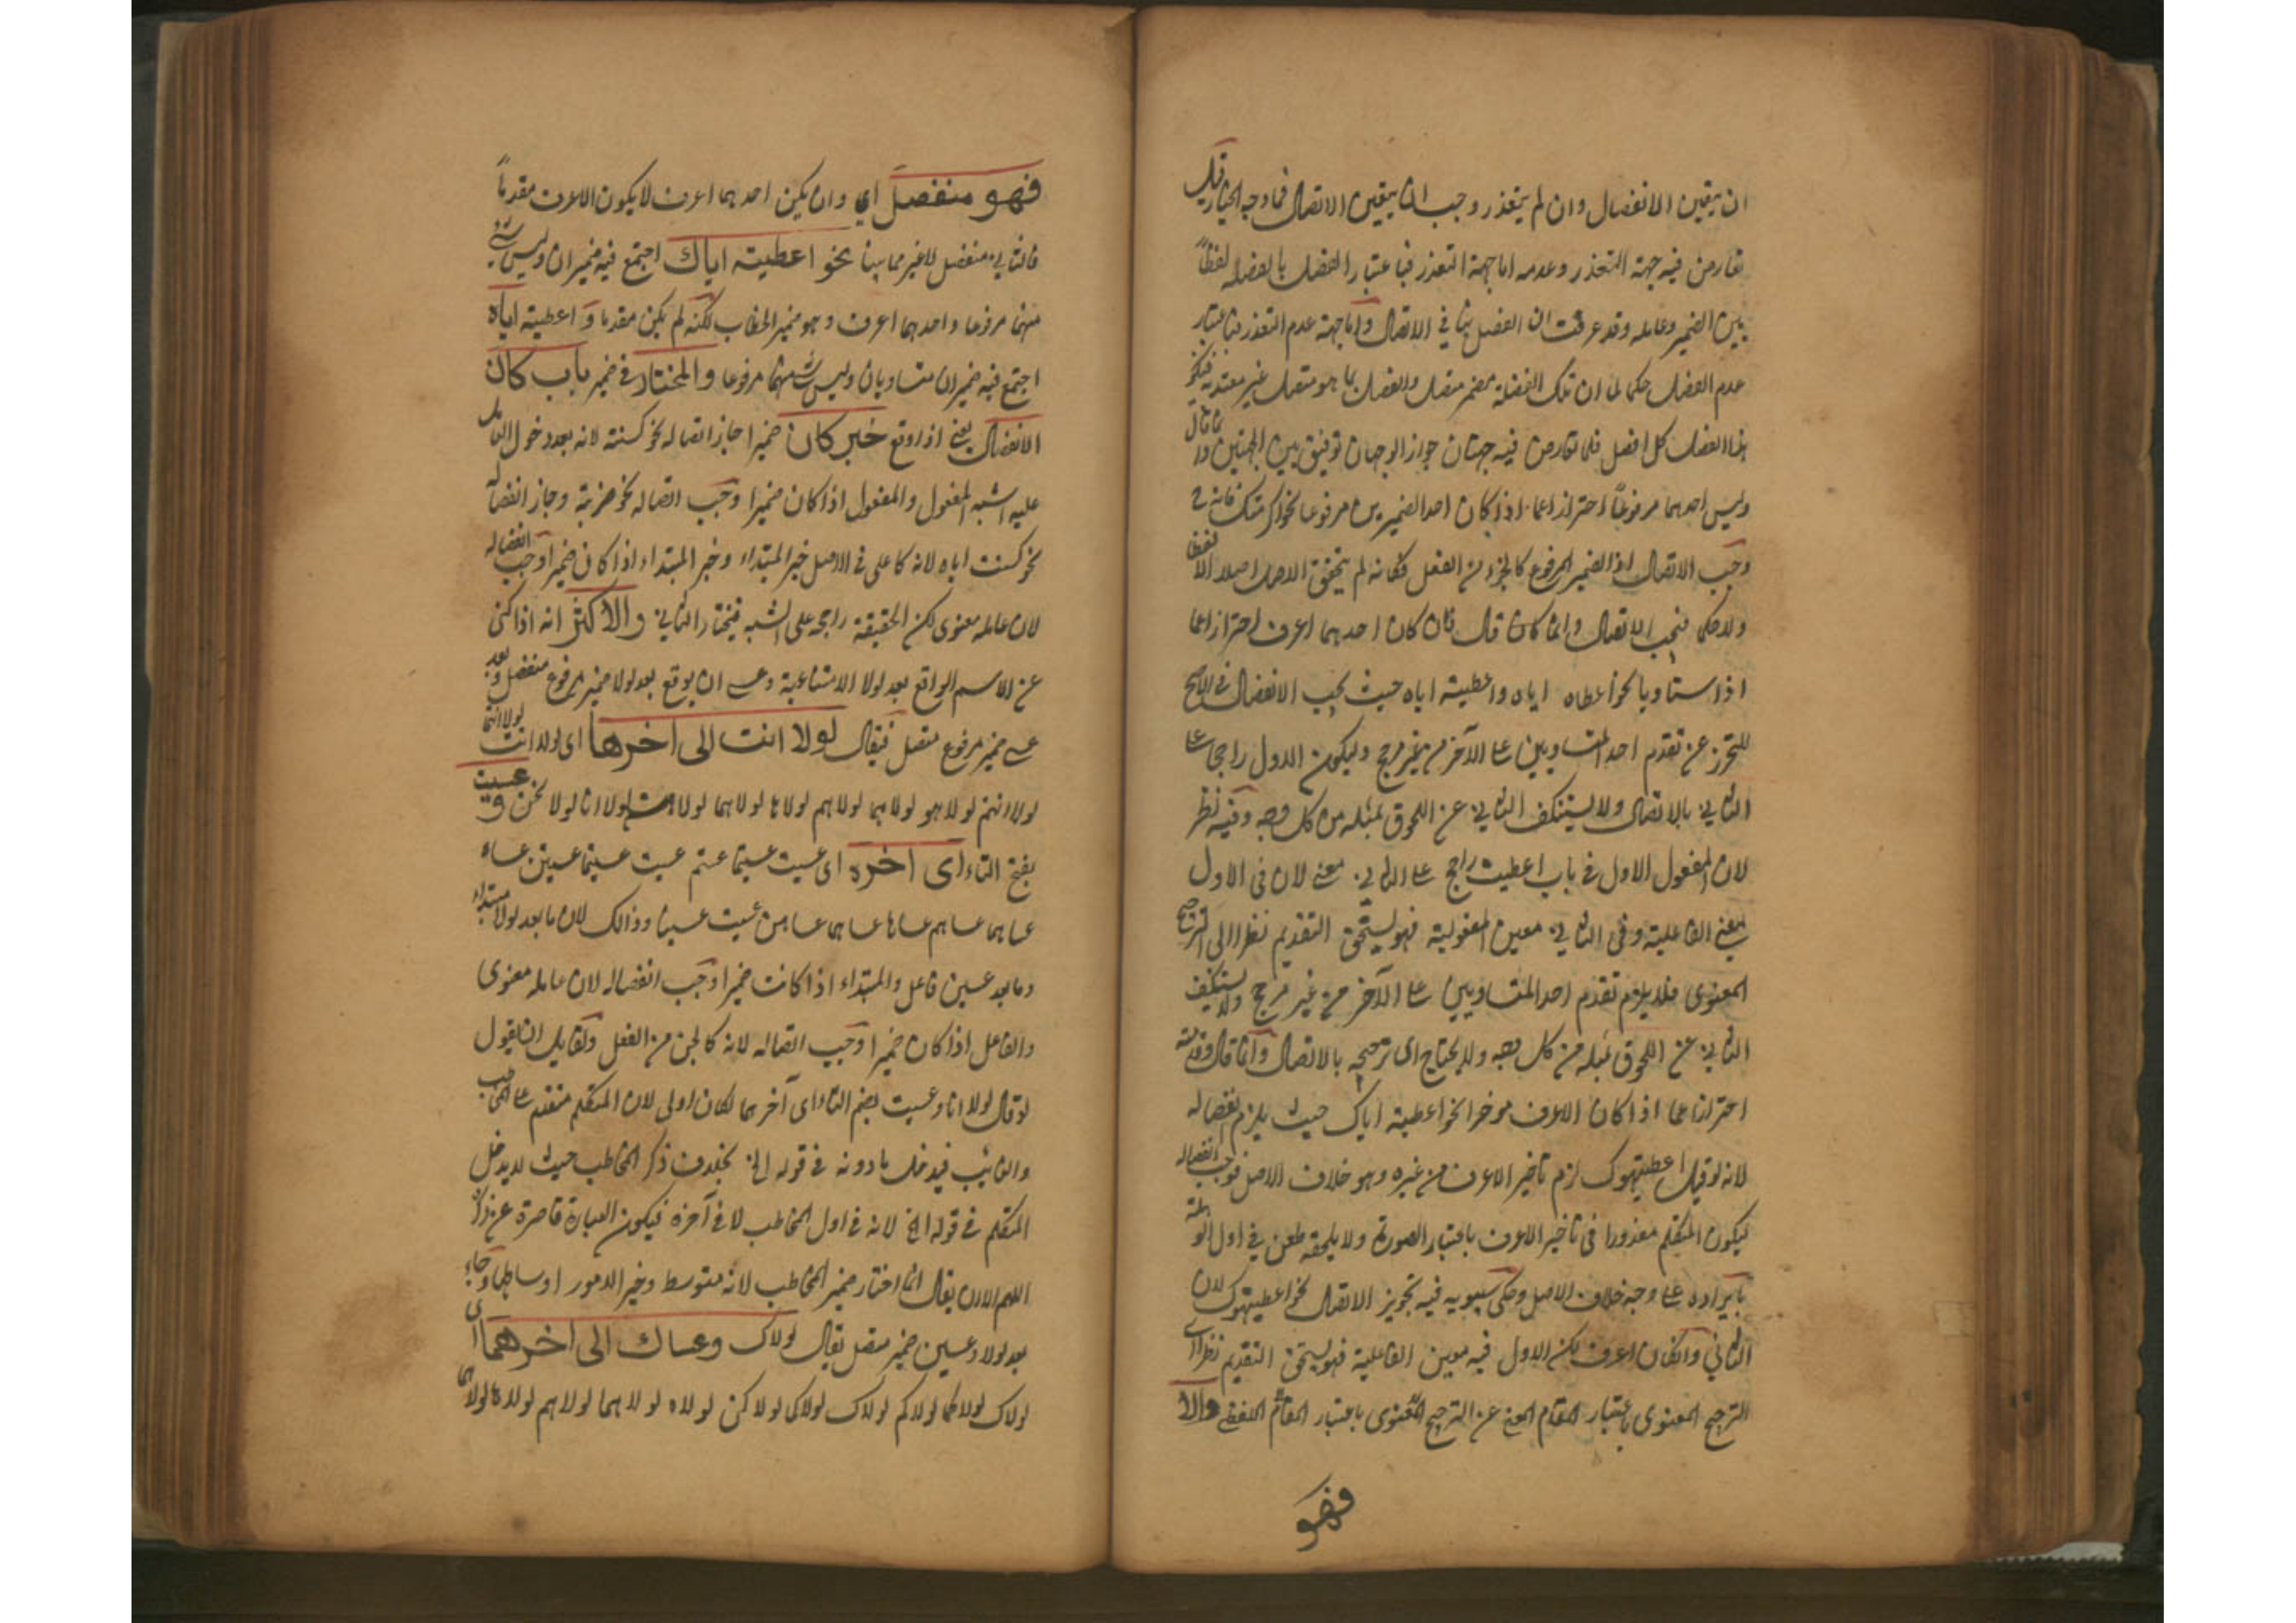 ان يتعين الانفصال وان لم يتعذر وجب ان يتعين الاتصال فما وجه الخيار قيل
تعارض فيه جهة التعذر وعدمه اما جهة التعذر فباعتبار الفصل بالفضلة لفظاً
بين الضمير وعامله وقد عرفت ان الفصل ينافي الاتصال واما جهة عدم التعذر فباعتبار
عدم الفصل حكما لما ان تلك الفضلة ضمير متصل والفصل بما هو متصل غير معتد به
هذا الفصل كلا فصل فلما تعارض فيه جهتان جواز الوجهان توفيق بين الجهتين وانما قال
وليس احدهما مرفوعاً احترازا عما اذا كان احد الضميرين مرفوعا نحو اكرمتك فانه ح
وجب الاتصال اذ الضمير المرفوع كالجزء من الفعل فكانه لم يتحقق الفصل اصلا لا لفظا
ولا حكما فيجب الاتصال وانما كان قال فان كان احدهما اعرف احترازا عما
اذا ستاويا نحو اعطاه اياه واعطيته اياه حيث يجب الانفصال في الاصح
للتحرز عن تقدم احد المتساويين على الآخر من غير مرجح وليكون الاول راجحا على
الثاني بالاتصال ولا يستنكف الثاني عن اللحوق بمثله من كل وجه وفيه نظر
لان المفعول الاول في باب اعطيت راجح على الثاني معنى لان في الاول
معنى الفاعلية وفي الثاني معين المفعولية فهو ليستحق التقديم نظرا الى الترجيح
المعنوى فلا يلزم تقدم احد المتساويين على الآخر من غير مرجح ولا يستنكف
الثاني عن اللحوق بمثله من كل وجه ولا يحتاج الى ترجيحه بالاتصال وانما قال وقدمته
احترازا عما اذا كان الاعرف موخرا نحو اعطيته اياك حيث يلزم انفصاله
لانه لو قيل اعطيتهوك لزم تاخير الاعرف من غيره وهو خلاف الاصل فوجب انفصاله
ليكون المتكلم معذورا في تاخير الاعرف باعتبار الضرورة ولا يلحقه طعن في اول الوهلة
بايراده على وجه خلاف الاصل وحكى سيبويه فيه تجويز الاتصال نحو اعطيتهوك لان
الثاني وان كان اعرف لكن الاول فيه معين الفاعلية فهو ليستحق التقديم نظرا الى
الترجيح المعنوى باعتبار المقام عن الترجيح المعنوى باعتبار المقام والا
فهو
فهو منفصل اي وان يكن احدهما اعرف لا يكون الاعرف مقدماً
فالثاني منفصل لا غير مما بينا نحو اعطيته اياك اجتمع فيه ضميران وليس شئ
منهما مرفوعا واحدهما اعرف وهو ضمير الخطاب لكنه لم يكن مقدما و اعطيته اياه
اجتمع فيه ضميران متساويان وليس شئ منهما مرفوعا والمختار في ضمير باب كان
الانفصال يعنى اذا وقع خبر كان ضميرا جاز اتصاله نحو كنته لانه بعد دخول العامل
عليه اشبه المفعول والمفعول اذا كان ضميرا وجب اتصاله نحو ضربته وجاز انفصاله
نحو كنت اياه لانه كان على في الاصل خبر المبتداء وخبر المبتداء اذا كان ضميرا وجب انفصاله
لان عامله معنوى لكن الحقيقة راجح على الشبه فيختار الثاني والاكثر انه اذا كنى
عن الاسم الواقع بعد لولا الامتناعية وعسى ان يوقع بعد لولا ضمير مرفوع منفصل وبعد
عسى ضمير مرفوع متصل فيقال لولا انت الى اخرها اى لولا انت لولا انتما
لولا انتم لولا هو لولا هما لولا هم لولا ها لولا هما لولا هن لولا انا لولا نحن و عسيت
بفتح التاء اى اخره اى عسيت عسيتما عستم عسيت عسيتما عسيتن عساه
عساهما عساهم عساها عساهما عساهن عسيت عسينا وذالك لان ما بعد لولا مبتداء
وما بعد عسين فاعل والمبتداء اذا كانت ضميرا وجب انفصاله لان عامله معنوى
والفاعل اذا كان ضميرا وجب اتصاله لانه كالجزء من الفعل ولقايل ان يقول
لو قال لولا انا وعسيت بضم التاء اى آخرهما لكان اولى لان المتكلم متقدم على المخاطب
والغائب فيدخل ما دونه في قوله الخ بخلاف ذكر المخاطب حيث لا يدخل
المتكلم في قوله الخ لانه في اول المخاطب لا في آخره فيكون العبارة قاصرة عن ذكره
اللهم الا ان يقال انما اختار ضمير المخاطب لانه متوسط وخير الامور اوساطها وجاء
بعد لولا وعسين ضمير متصل يقال لولاك وعساك الى اخرهما اى
لولاك لولاكما لولاكم لولاك لولاكما لولاكن لولاه لولاهما لولاهم لولاها لولاهما